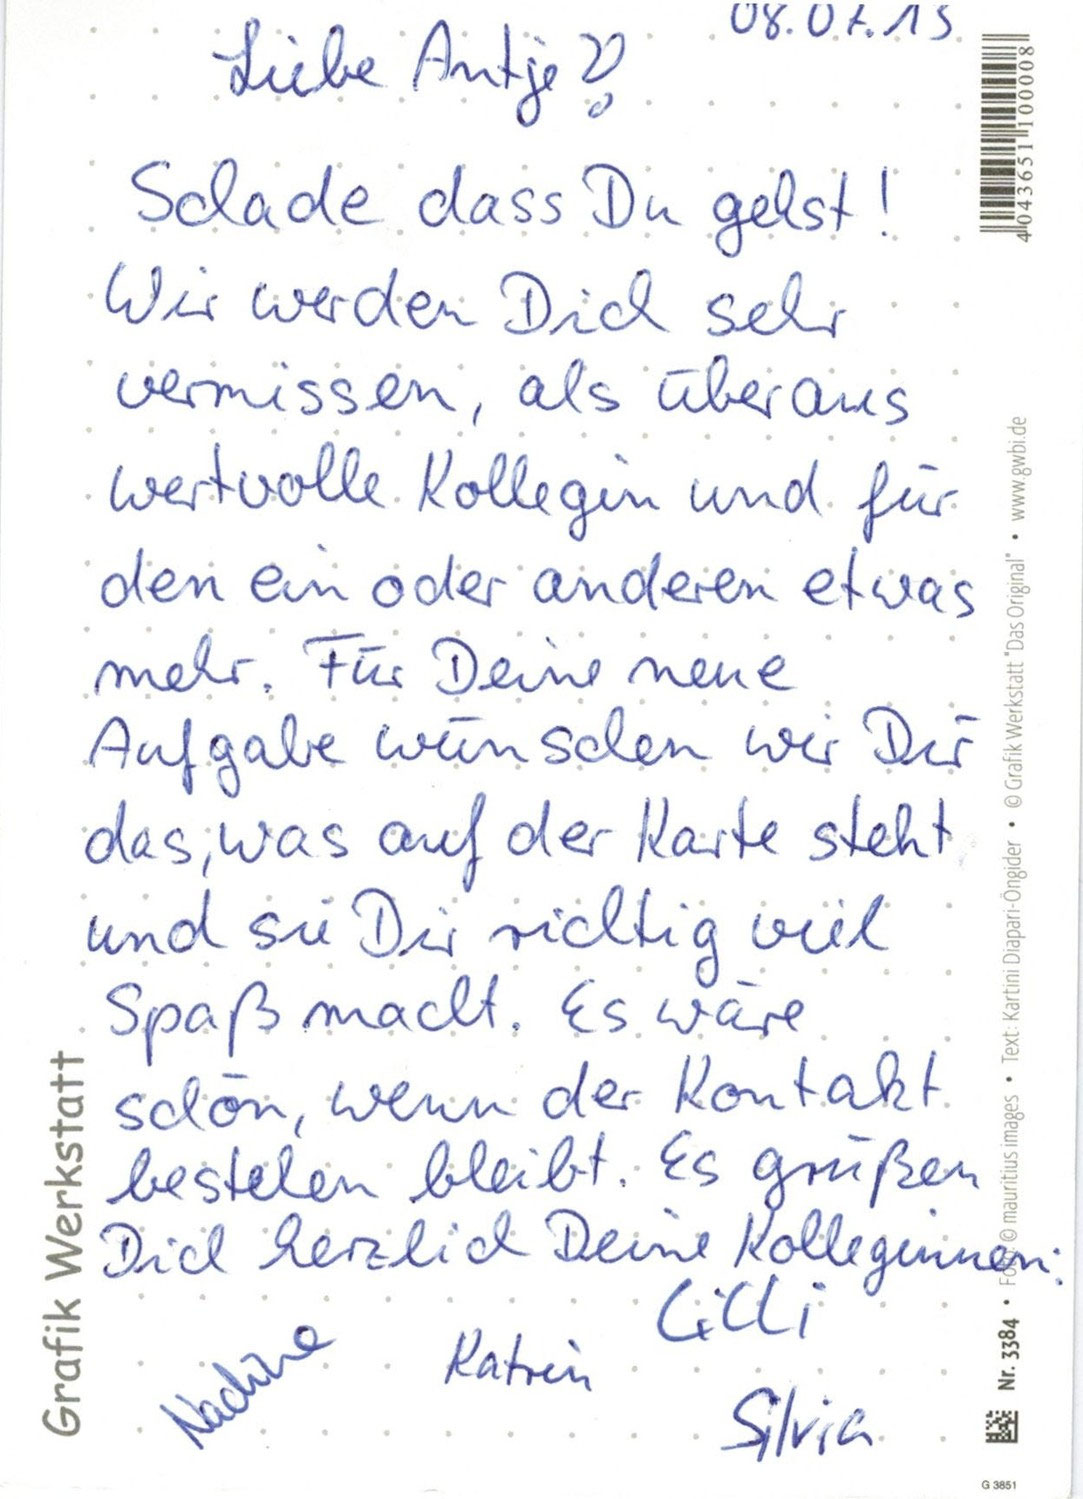 08.07.13
Liebe Antje!
Schade dass Du gehst!
Wir werden Dich sehr
vermissen, als überaus
wertvolle Kollegin und für
den ein oder anderen etwas
mehr. Für Deine neue
Aufgabe wünschen wir Dir
das, was auf der Karte steht
und sie Dir richtig viel
Spaß macht. Es wäre
schön, wenn der Kontakt
bestehen bleibt. Es grüßen
Dich herzlich Deine Kolleginnen:
Cilli
Nadine Katrin
Silvia
Grafik Werkstatt
4043651100008
Nr. 3384 • Foto: © mauritius images • Text: Kartini Diapari-Öngider • © Grafik Werkstatt "Das Original" • www.gwbi.de
G 3851